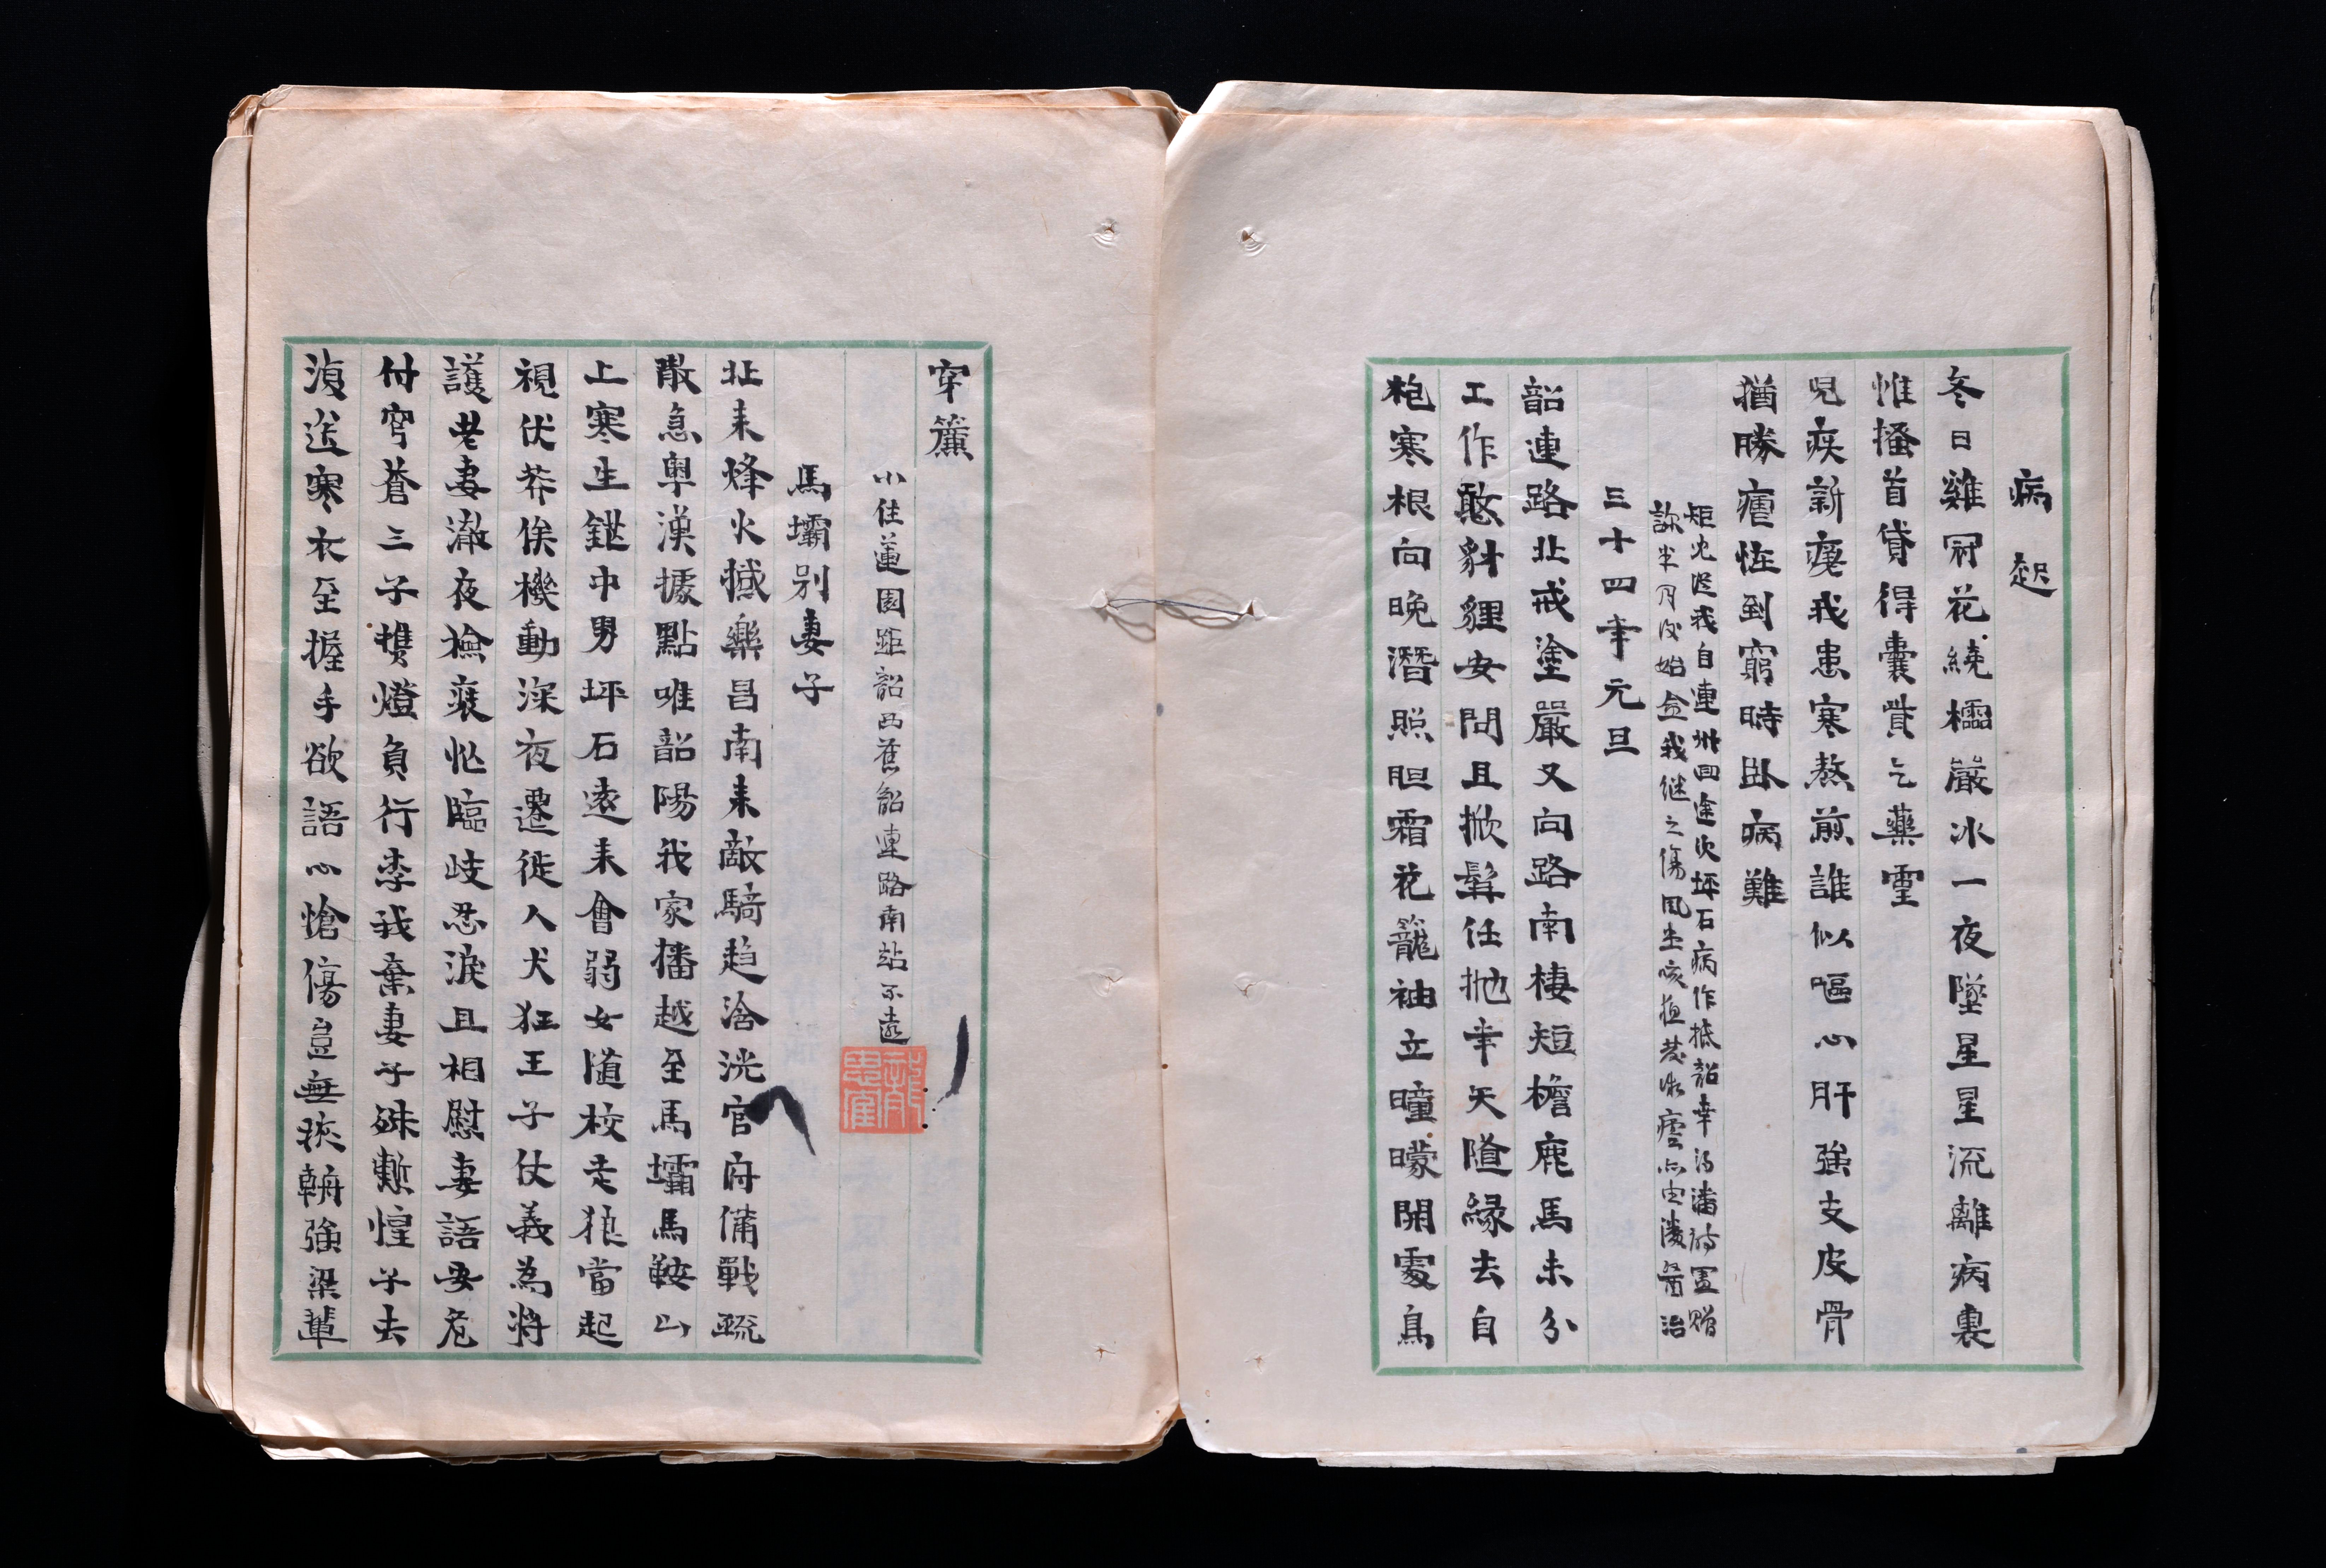 病起
冬日雞冠花繞櫺嚴冰一夜墜星星流離病裏
惟搔首貸得囊貲乞藥靈
児疾新瘥我患寒熬煎誰似嘔心肝強支皮骨
猶勝瘧怪到窮時卧病難
矩児偕我自連州回途次坪石病作抵韶幸得潘醫贈
診半月後始全我继之傷風生咳
三十四年元旦
韶連路北戒塗嚴又向路南棲短檐鹿馬未分
工作憨豺貍安問且掀髯任抛年矢隨緣去自
袍寒根向晚潛照胆霜花籠袖立曈曚開處鳥
穿簾
小住蓮園距韶西蕉韶連路南站不遠
馬壩别妻子
北来烽火撼樂昌南来敵騎趋浛洸官府備戰疏
散急粤漢據點唯韶陽我家播越至馬壩馬鞍山
上寒生鋩中男坪石遠来會弱女隨校走狼當起
視伏莽俟機動深夜遷徙人犬狂王子仗義為將
護老妻澈夜檢襄忙臨歧忍淚且相慰妻語安危
付穹蒼三子携燈負行李我棄妻子殊慚惶子去
復送寒衣至握手欲語心愴傷豈無狹輈強梁輩